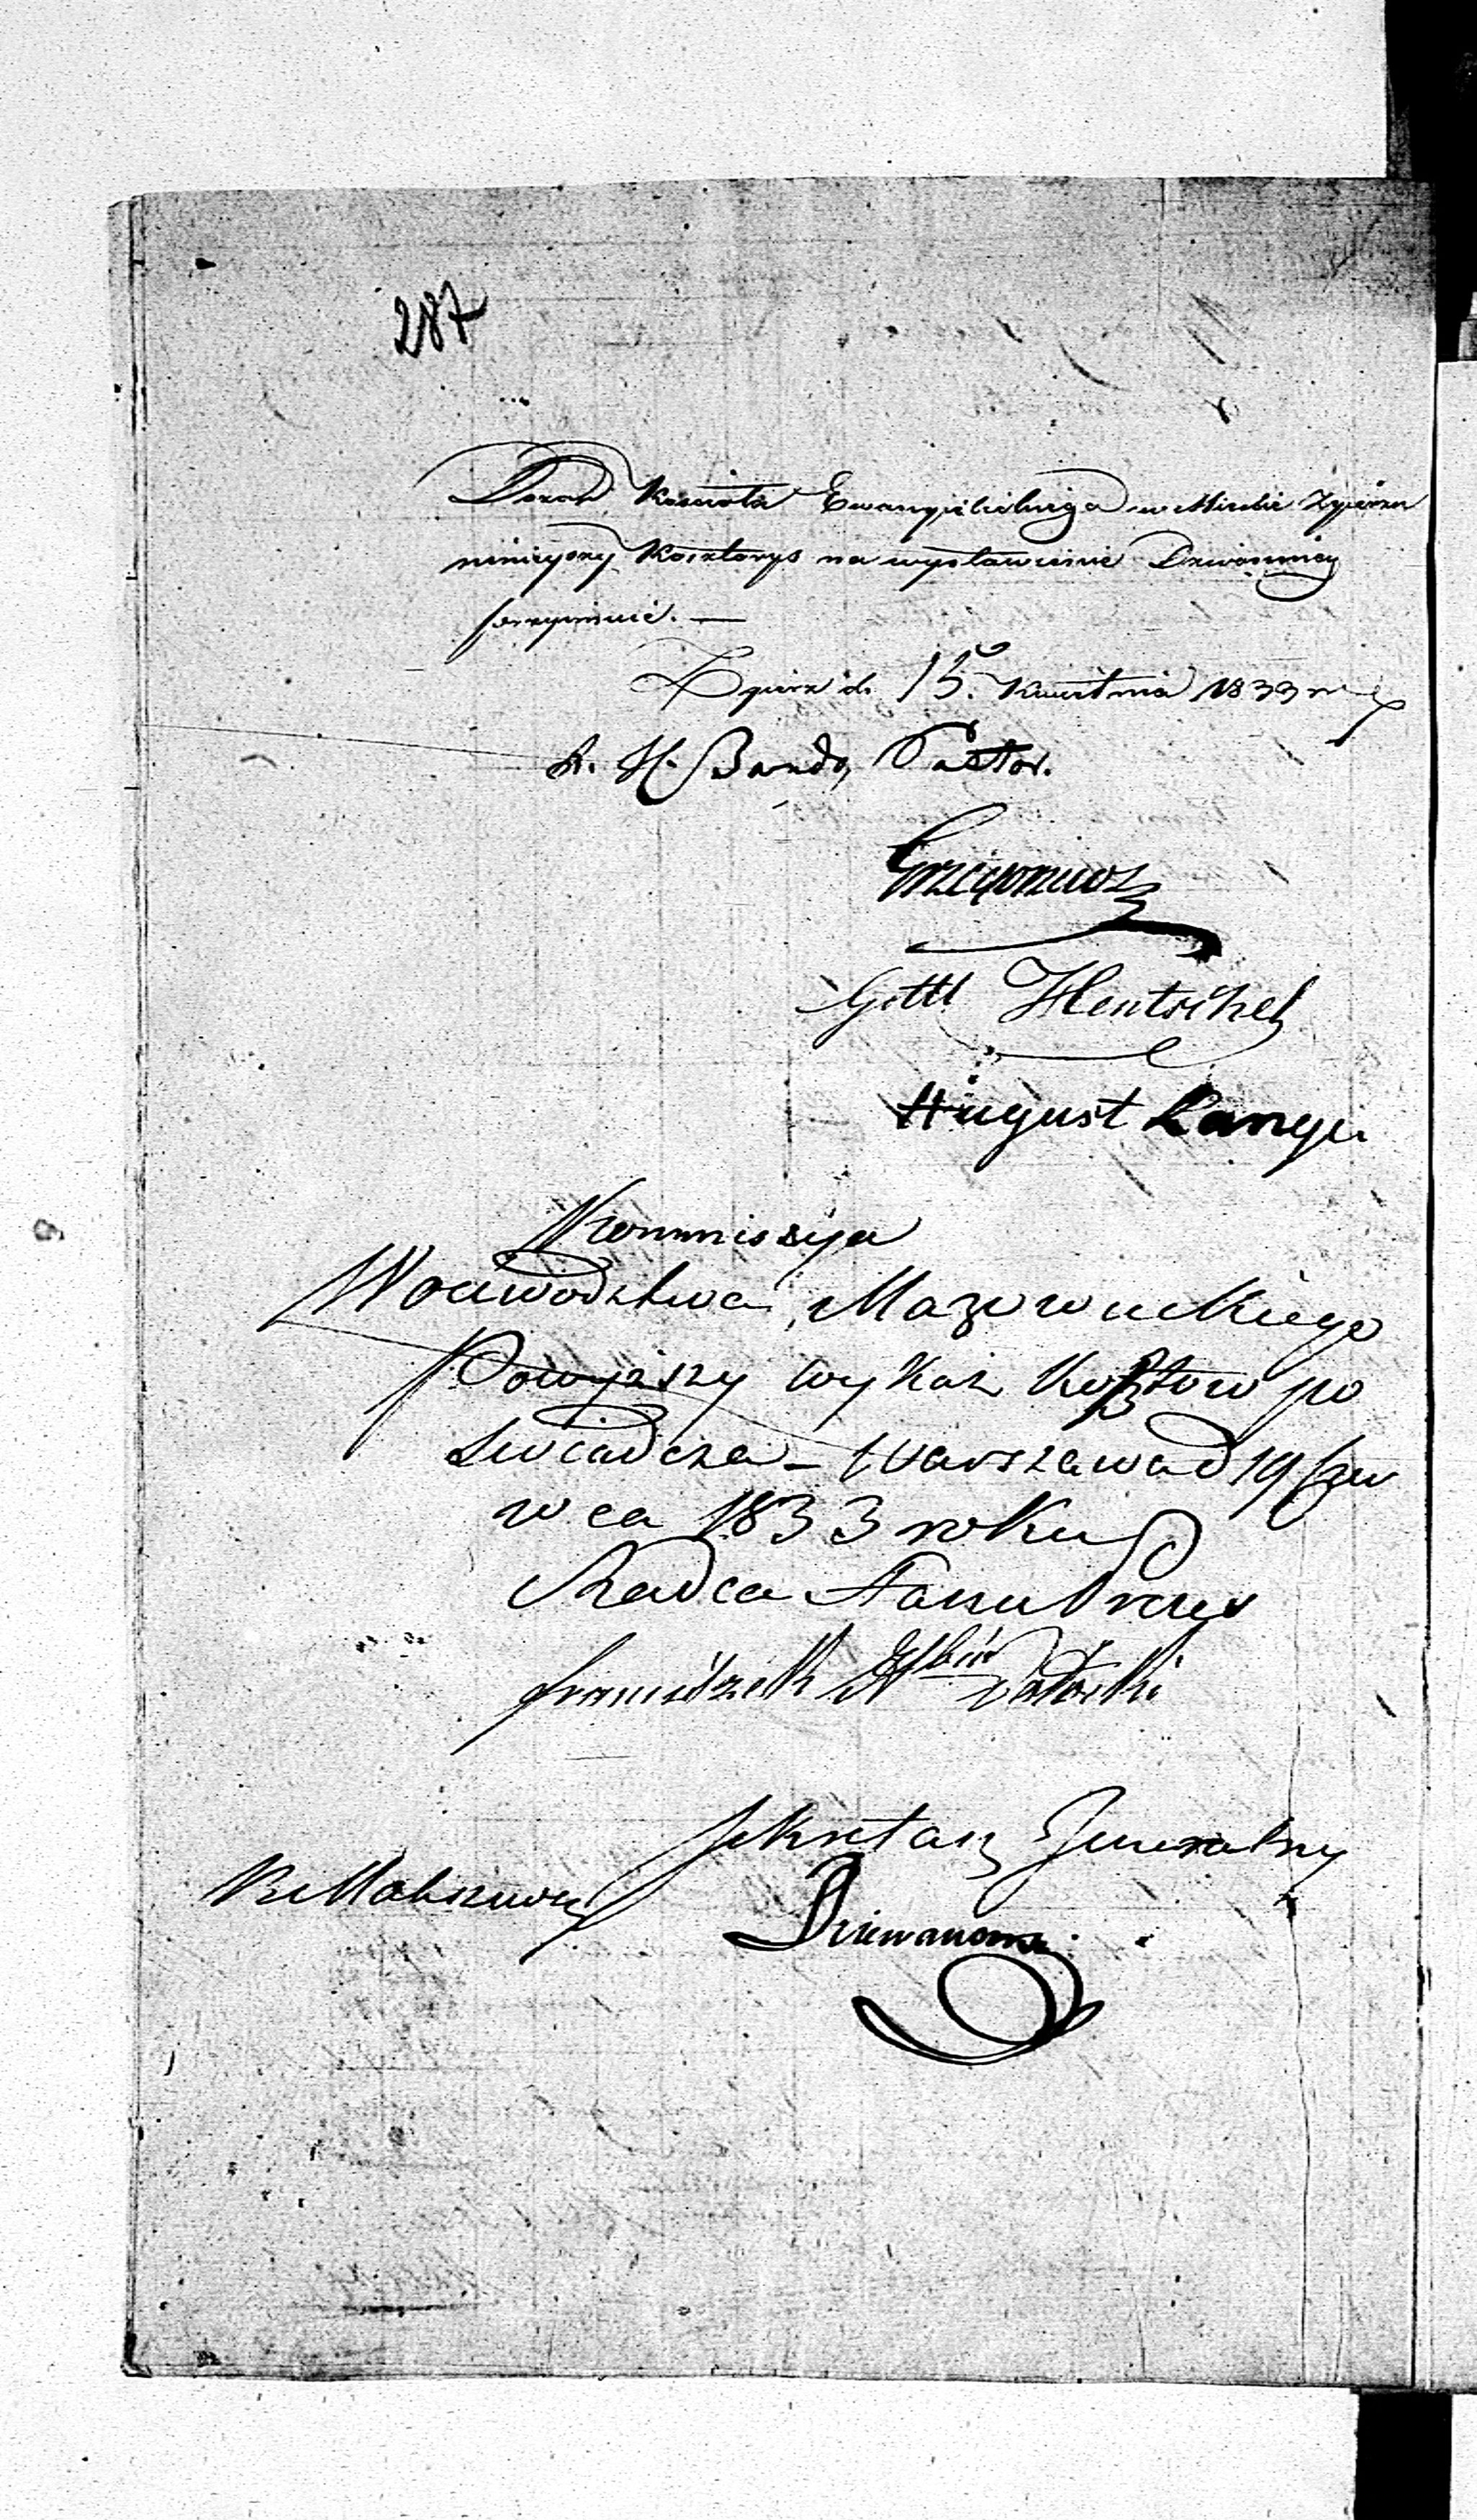 287
Dozór Kościoła Ewangielickiego w Mieście Zgierzu
ninieyszy Kosztorys na wystawienie Dzwonnicy
przyimuie. —
Zgierz d. 15. Kwietnia 1833 r
Pastor.
Gottl Hentschel
August Lange
Kommissya
Woiewodztwa Mazowieckiego
Powyższy wykaz Kosztow po
swiadcza – Warszawa d 19 Czer
wca 1833 roku
Radca Stanu Prezes
Franciszek
Sekretarz Jeneralny